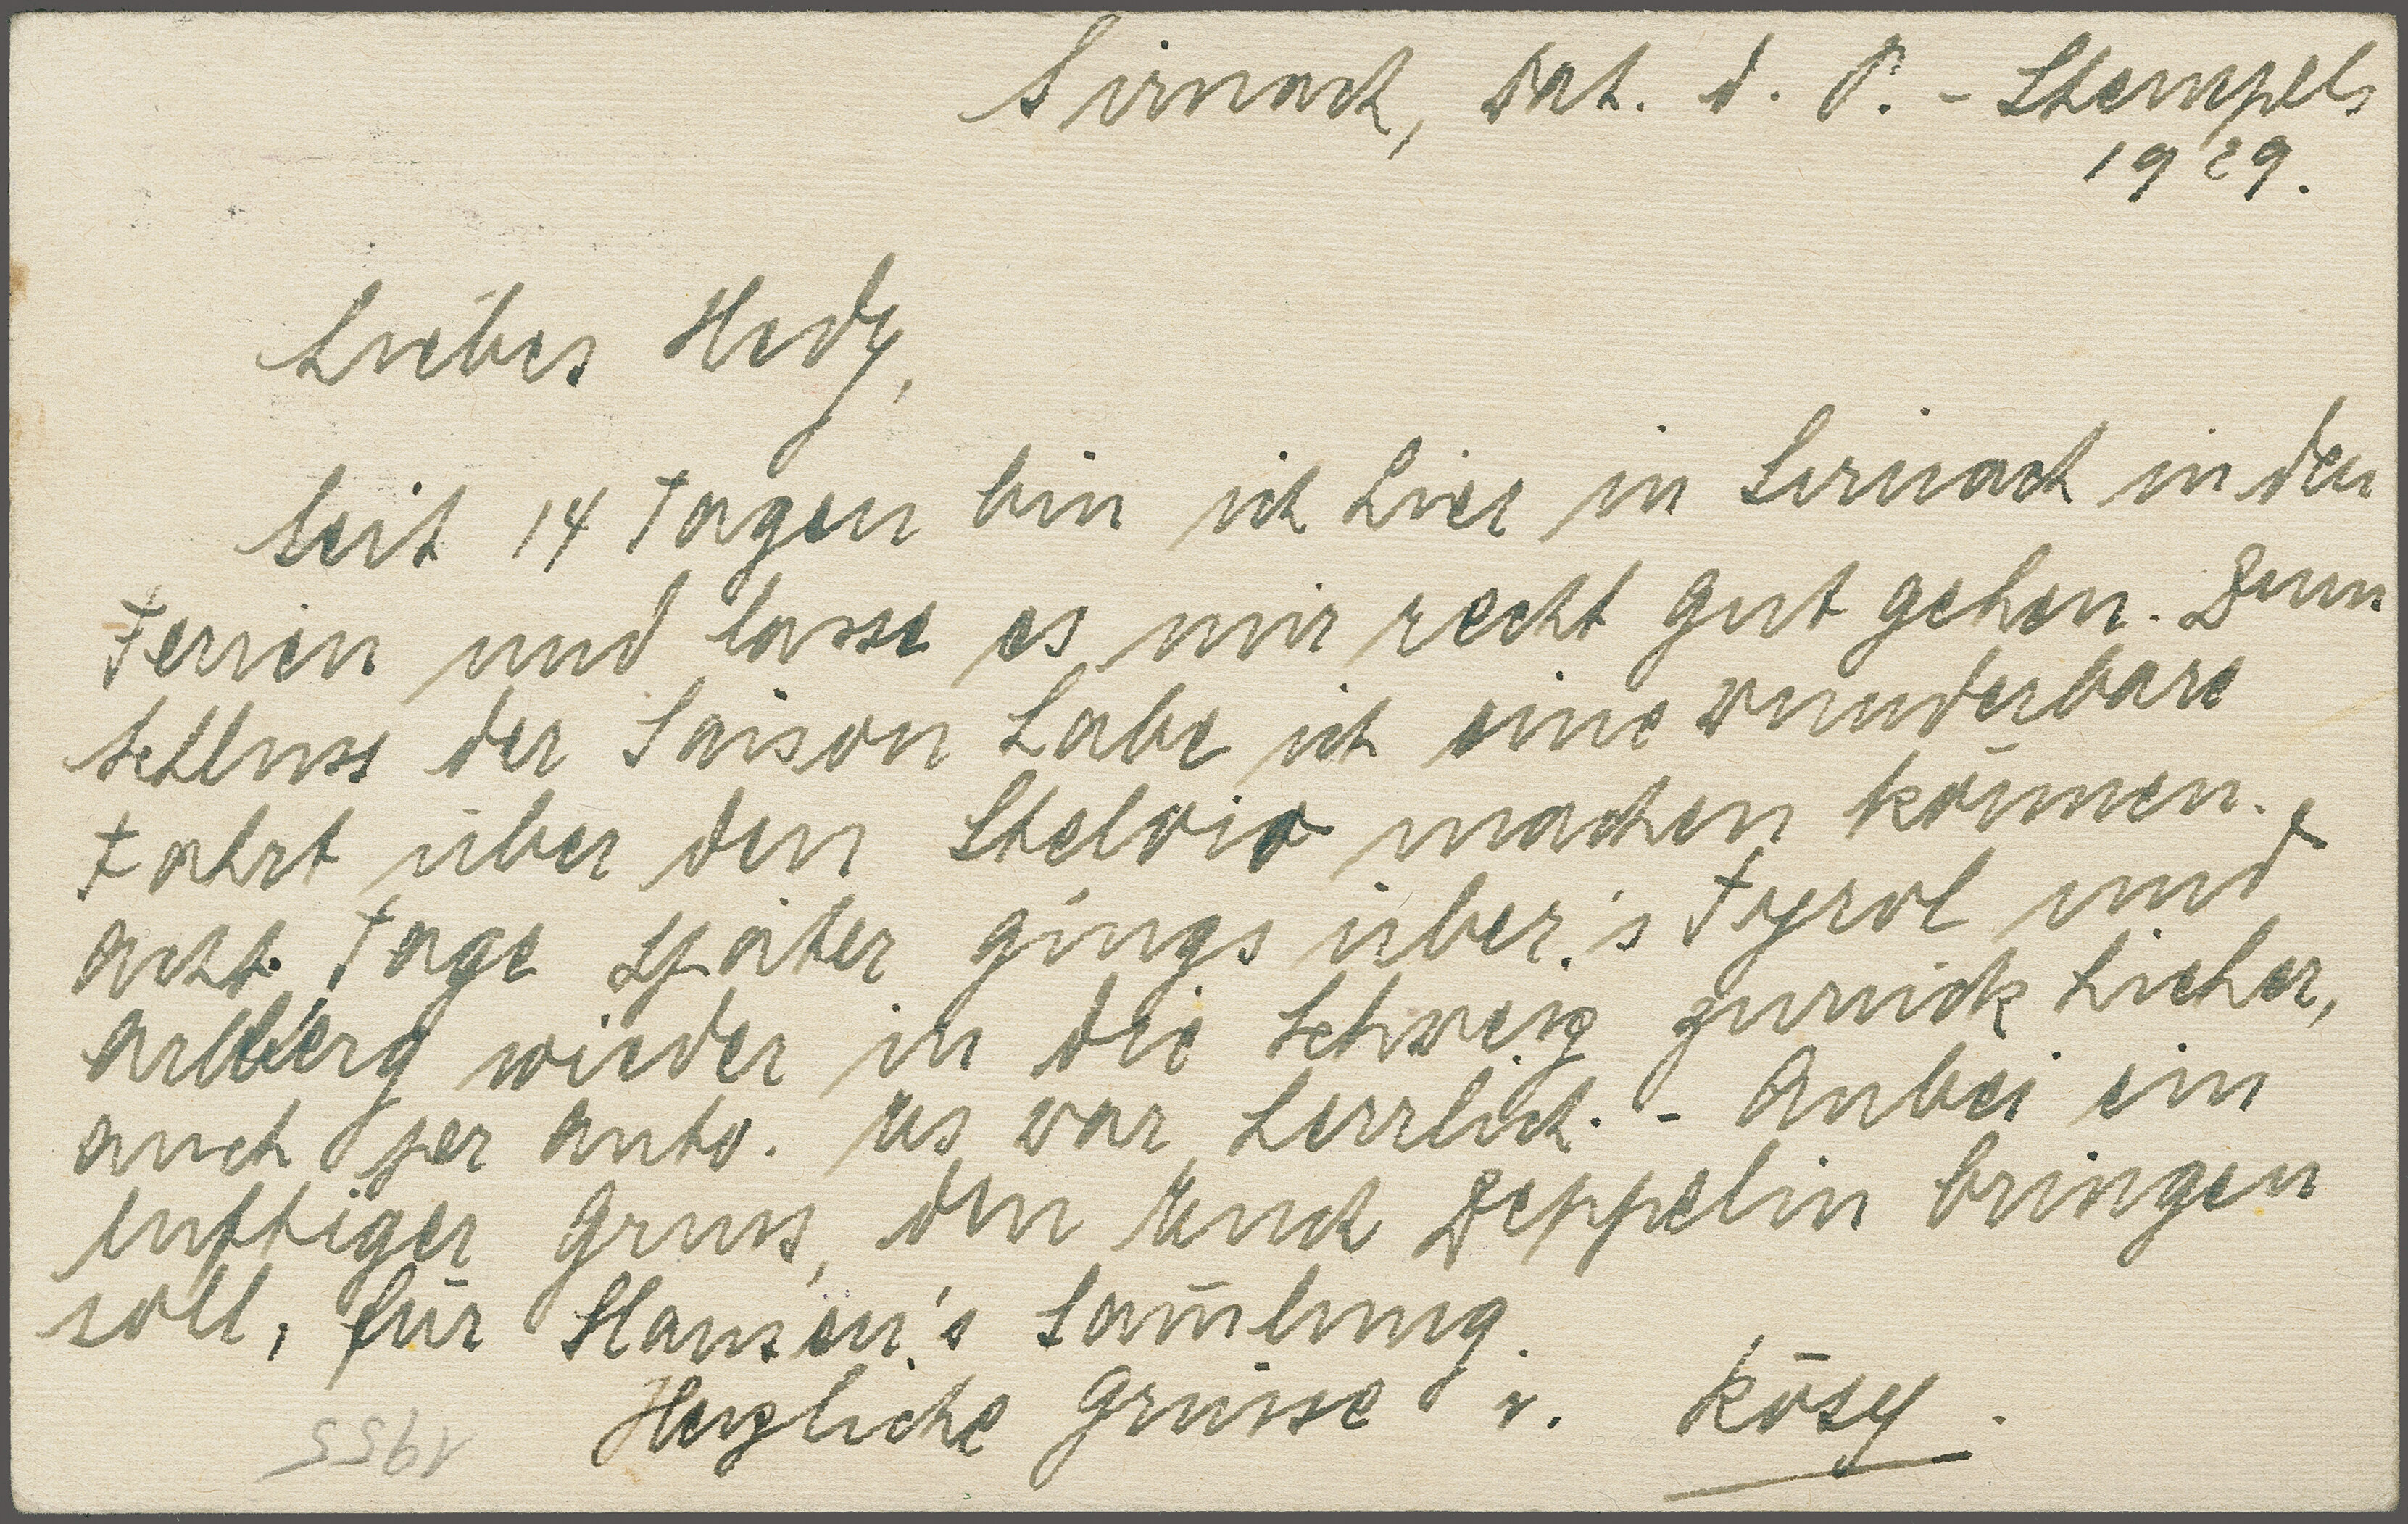 Sirnach, Dat. d. P. - Stempels
1929.
Liebes Hedy,
Seit 14 Tagen bin ich hier in Sirnach in den
Ferien und lasse es mir recht gut gehen. Zum
Schluss der Saison habe ich eine wunderbare
Fahrt über den Stelvio machen können.
Acht Tage später gings über's Tyrol und
Arlberg wieder in die Schweiz zurück hieher,
auch per Auto. Es war herrlich. - Anbei ein
luftiger Gruss, den Euch Zeppelin bringen
soll, für Hansen's Sam̄lung.
Herzliche Grüsse v. Rösy.
1955